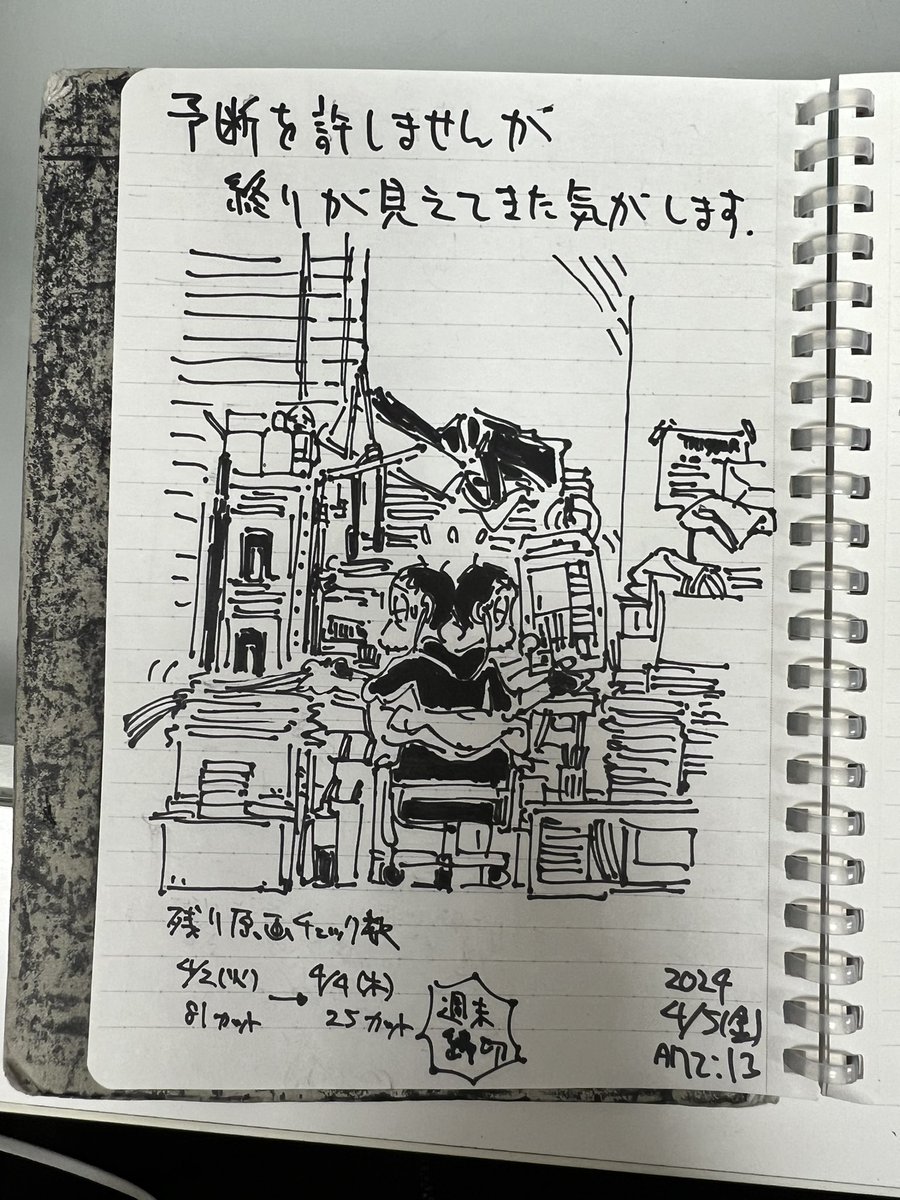 予断を許しませんが
終りが見えてきた気がします.
残り原画チェック数
4/2(火) → 4/4(木)
81カット 25カット
週末
締切
2024
4/5(金)
AM2:13